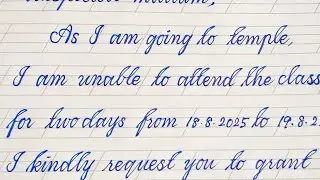 As I am going to temple,
I am unable to attend the class
for two days from 18.8.2025 to 19.8.2
I kindly request you to grant